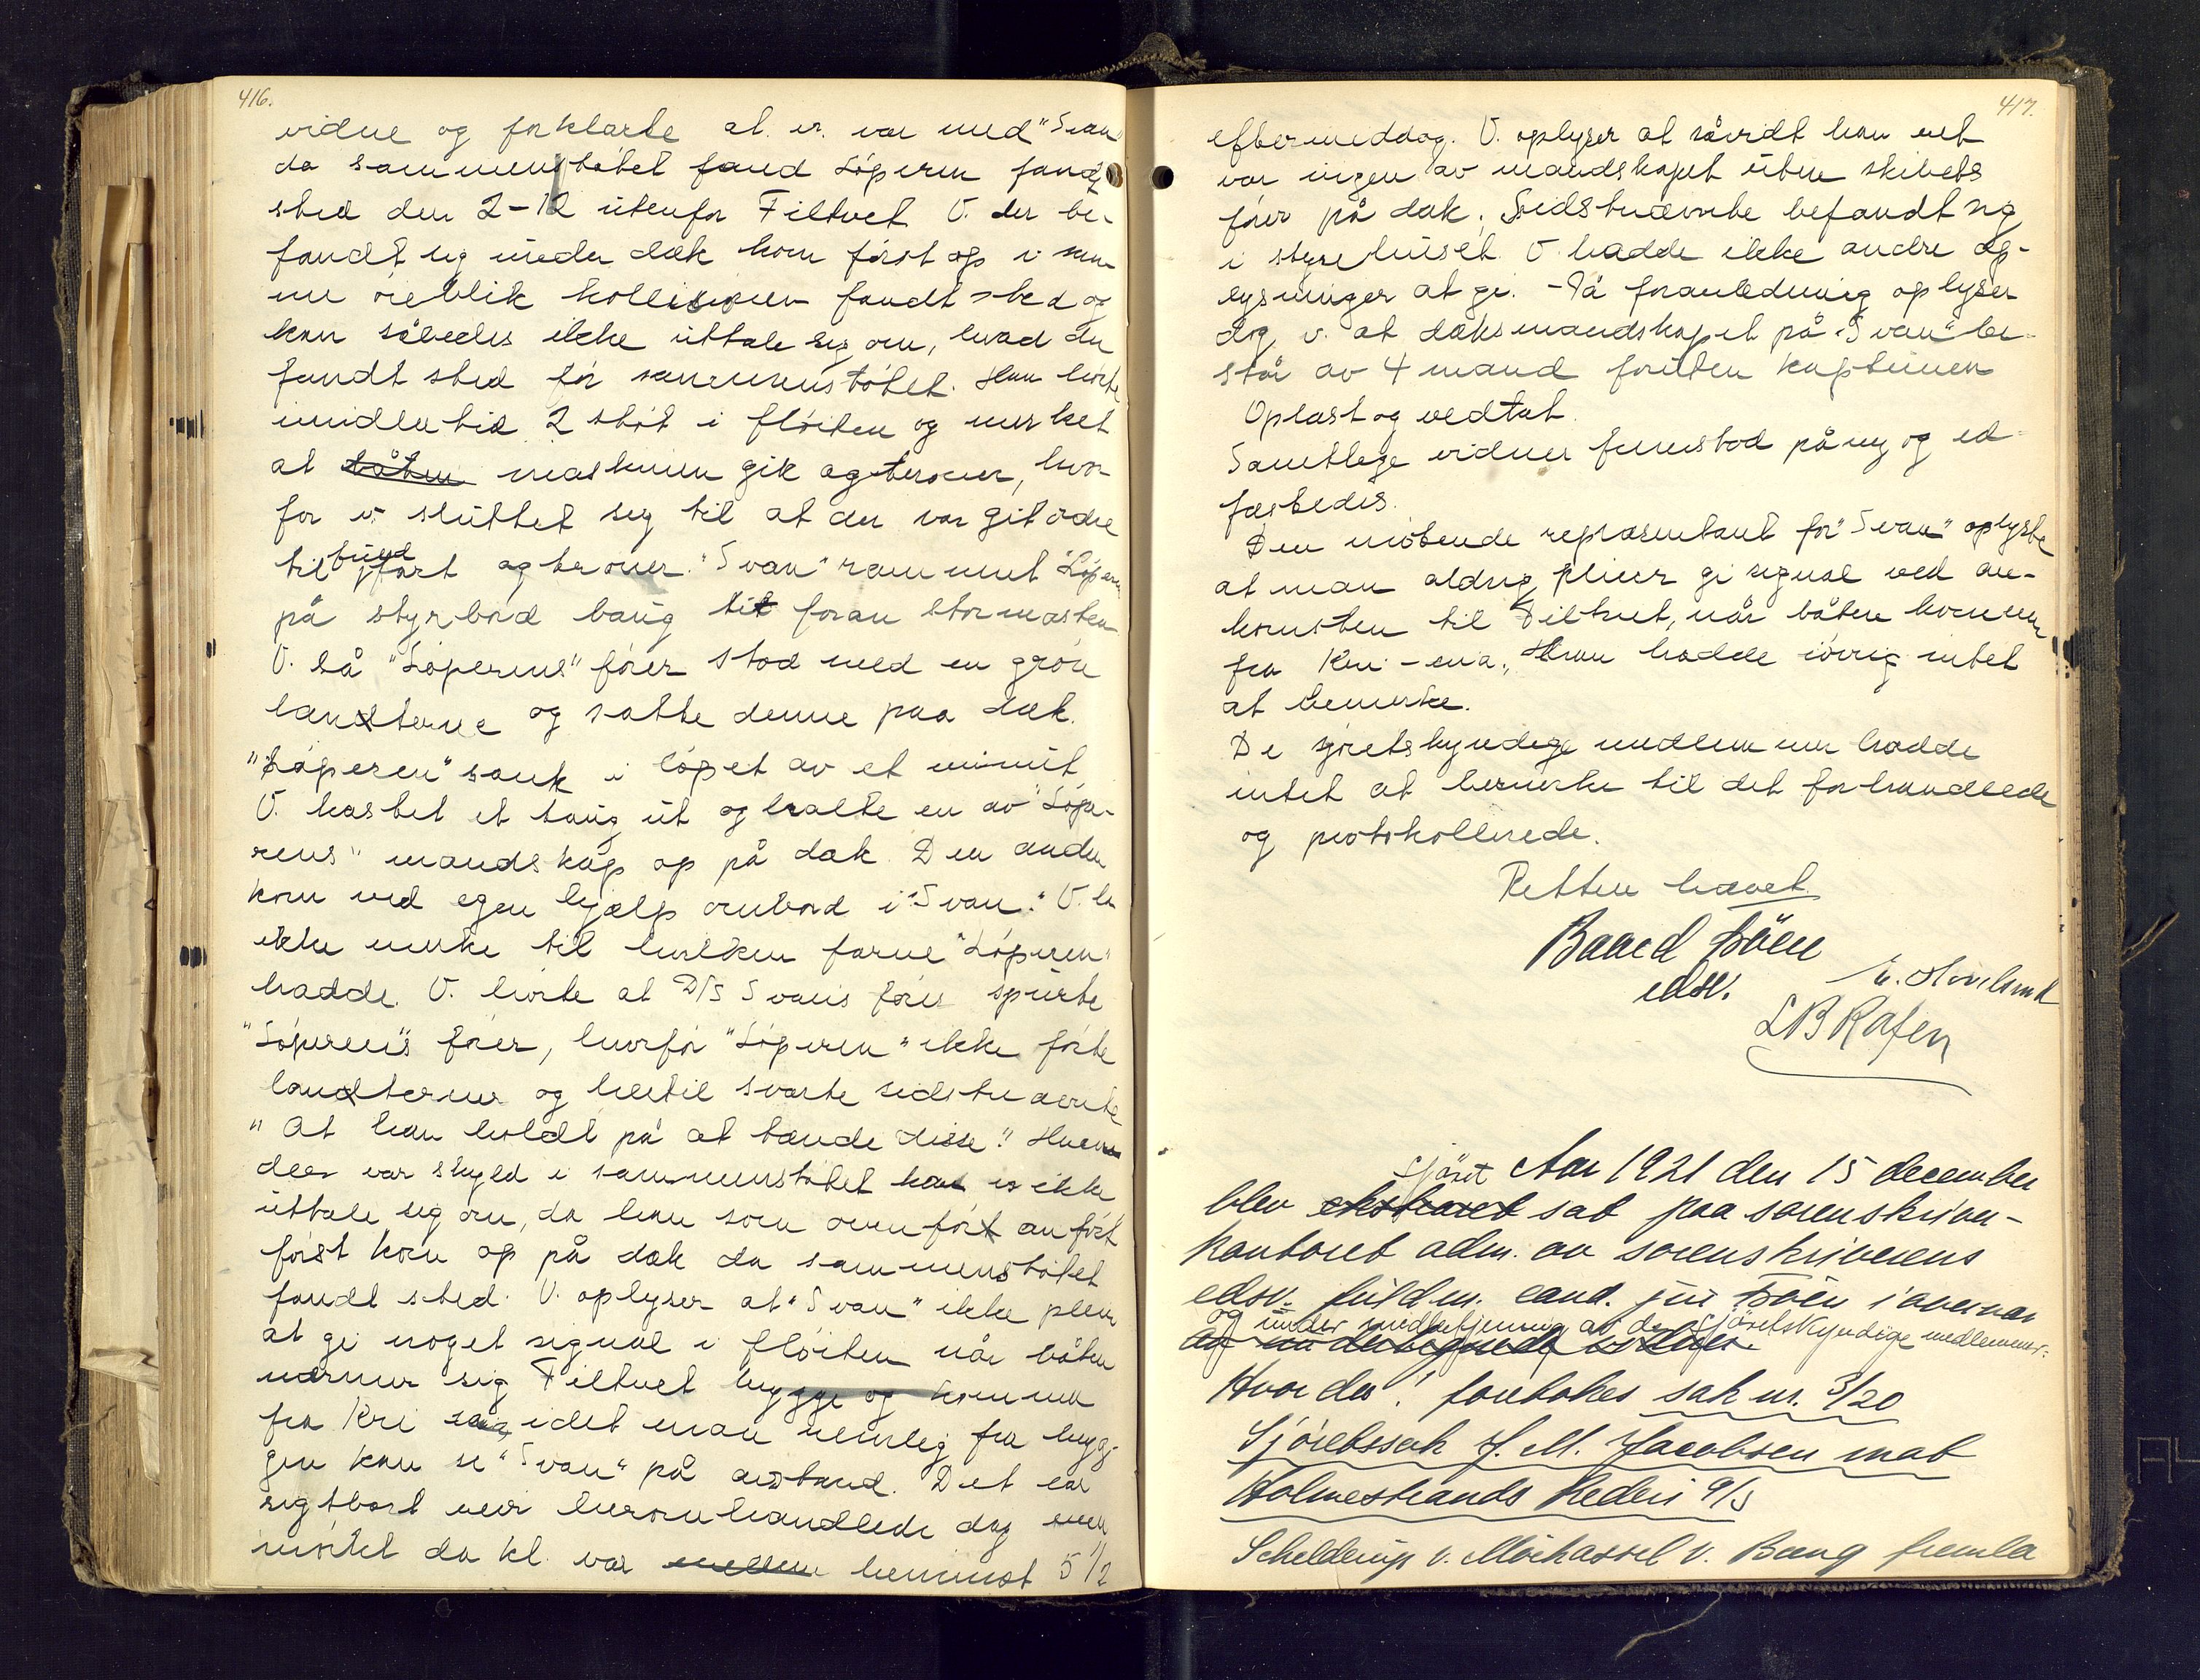 416.
vidne og forklarte at v. var med "Svan"
da sammenstøtet fand Löperen fandt
sted den 2-12 utenfor Filtvet V. der be-
fandt sig under dæk kom først op i sam-
me øieblik kollisjonen fandt sted og
kan således ikke uttale sig om, hvad der
fandt sted før sammenstøtet. Han hørte
imidlertid 2 støt i fløiten og merket
at båten maskinen gik agterover, hvor-
for v. sluttet sig til at der var git ordre
til fuld fart agterover. "Svan" rammet "Löperen
på styrbord baug tæt foran stormasten
V. så "Löperens" fører stod med en grøn
landterne og satte denne paa dæk.
"Löperen" sank i løpet av et minut
V. kastet et taug ut og halte en av "Löpe-
rens" mandskap op på dæk. Den anden
kom ved egen hjælp ombord i "Svan". V. la
ikke merke til hvilken farve "Löperen"
hadde. V. hørte at D/S Svans fører spurte
"Löperen"s fører, hvorfor "Löperen" ikke førte
landterner og hertil svarte sidstnævnte
" At han holdt på at tænde disse." Hvem
der var skyld i sammenstøtet kan v ikke
uttale sig om, da han som ovenført anført
først kom op på dæk da sammenstøtet
fandt sted. V. oplyser at "Svan" ikke pleier
at gi noget signal i fløiten når båten
nærmer sig Filtvet brygge og kommer
fra Kri idet man nemlig fra bryg-
gen kan se "Svan" på avstand. Det var
sigtbart veir heromhandlede dag men
mørket da kl. var mellem henimot 5 1/2
417.
eftermiddag. V. oplyser at såvidt han vet
var ingen av mandskapet uten skibets
fører på dæk. Sidstnævnte befandt sig
i styrehuset. V. hadde ikke andre op-
lysninger at gi. - På foranledning oplyser
dog v. at dæksmandskapet på "Svan" be-
står av 4 mand foruten kapteinen
Oplæst og vedtat.
Samtlige vidner fremstod på ny og ed-
fæstedes.
Den møtende repræsentant for "Svan" oplyste
at man aldrig pleier gi signal ved an-
komsten til Filtvet, når båten kommer
fra Kri-ania. Han hadde iøvrig intet
at bemerke.
De sjøretskyndige medlemmer hadde
intet at bemerke til det forhandlede
og protokollerede.
Retten hævet.
Baard Böen
edsv.
LB Rafen
sjöret Aar 1921 den 15 december
blev ekstraret sat paa sorenskriver-
kontoret adm. av sorenskriverens
edsv. fuldm. cand. jur Böen i overvær
og under medbetjening av de sjöretskyndige medlemmer:
av undertegnede vidner.
Hvorda! foretokes sak nr. 3/20
Sjöretssak J. M. Jacobsen mot
Holmestrands Rederi A/S
Schelderup v. Mörhassel v. Bang fremla